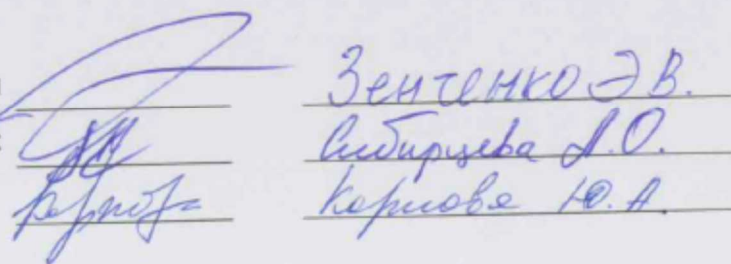 Зенченко Э.В.
Сибирцева А.О.
Карпова Ю.А.